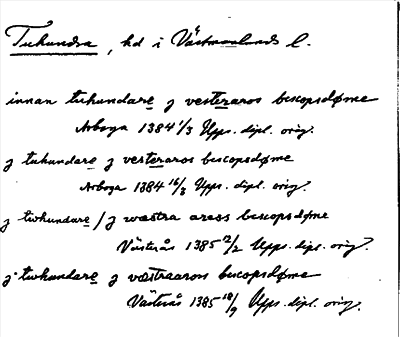 Tuhundra, hd i Västmanlands l.
innan tuhundare j vesteraros biscopsdøme
Arboga 1384 1/3 Upps. dipl. orig.
j tuhundare j vesteraros biscopsdøme
Arboga 1384 16/3 Upps. dipl. orig.
j twhundare / j wæstra aross biscopsdøme
Västerås 1385 12/2 Upps. dipl. orig.
j twhundare j wæstraaros biscopsdøme
Västerås 1385 18/9 Upps. dipl. orig.